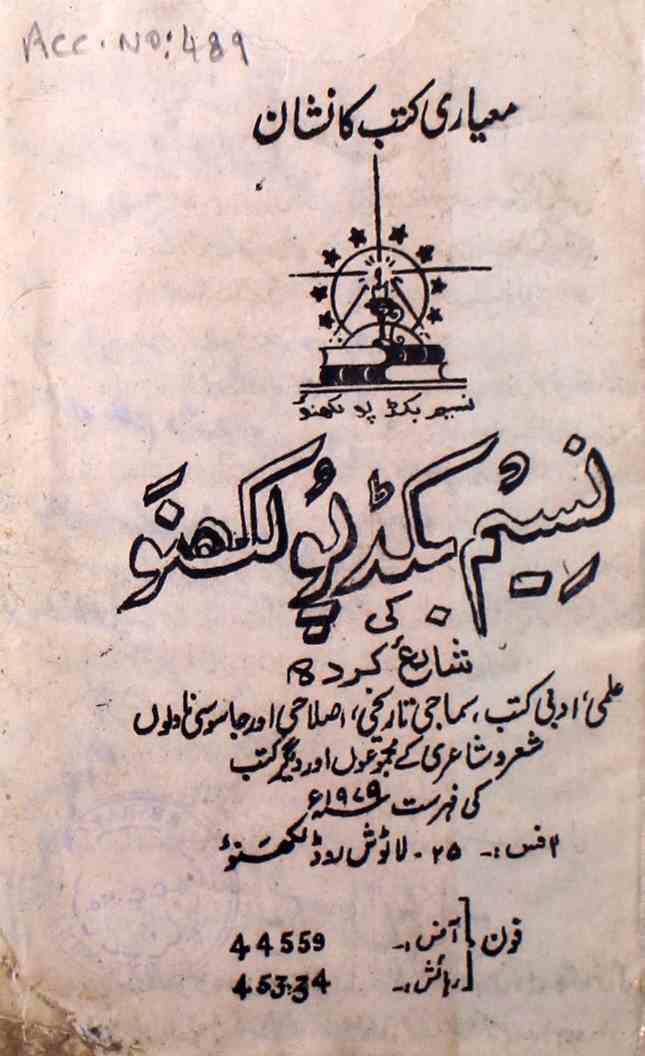 Acc. No: 489
معیاری کتب کا نشان
نسیم بکڈپو لکھنؤ
نسیم بکڈپو لکھنؤ
کی
شایع کردہ
علمی، ادبی کتب، سماجی تاریخی، اصلاحی اور جاسوسی ناولوں
شعر و شاعری کے مجموعوں اور دیگر کتب
کی فہرست ۱۹۷۹ء
آفس :۔ ۲۵۔ لاٹوش روڈ لکھنؤ
فون آفس :۔ 44559
رہائش :۔ 45334